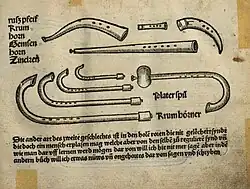 rusz pfeif
Krum
horn
Gemsen
horn
Zincken
Platerspil
Krumhörner
Die ander art des zweite geschlechtes ist in den holen roren die nit gelöchert synd
die doch ein mensch erplasen mag welche aber von den selbē zů regulirē synd vñ
wie man dar vff lernen werd mögen dar von will ich hie nit mer sagē aber in dē
andern bůch will ich etwas nüws vñ ungehortes dar von sagen vnd schryben